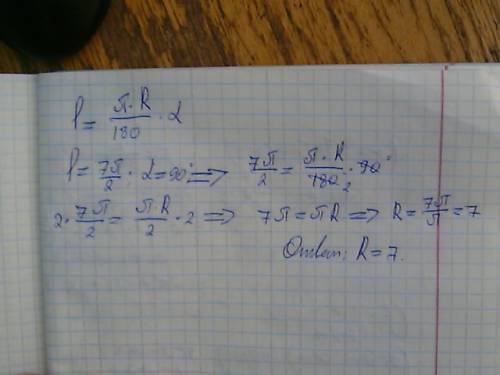 l = π·R/180 · α
l = 7π/2 · α = 90° => 7π/2 = π·R/180₂ · 90°
2 · 7π/2 = πR/2 · 2 => 7π = πR => R = 7π/π = 7
Ответ: R = 7.